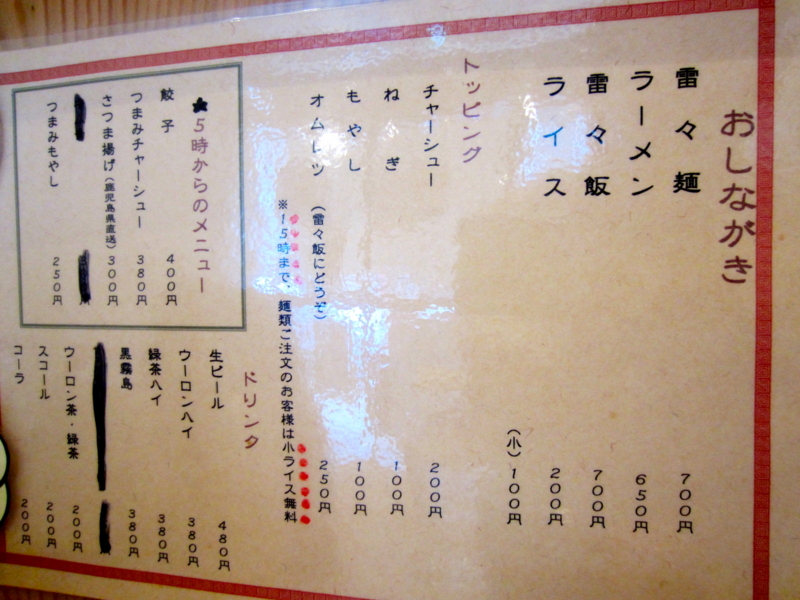 おしながき
雷々麺 700円
ラーメン 650円
雷々飯 700円
ライス 200円
(小) 100円
トッピング
チャーシュー 200円
ねぎ 100円
もやし 100円
オムレツ 250円
(雷々飯にどうぞ)
※15時まで、麺類ご注文のお客様は小ライス無料
★5時からのメニュー
餃子 400円
つまみチャーシュー 380円
さつま揚げ(鹿児島県直送) 300円
つまみもやし 250円
ドリンク
生ビール 480円
ウーロンハイ 380円
緑茶ハイ 380円
黒霧島 380円
ウーロン茶・緑茶 200円
スコール 200円
コーラ 200円